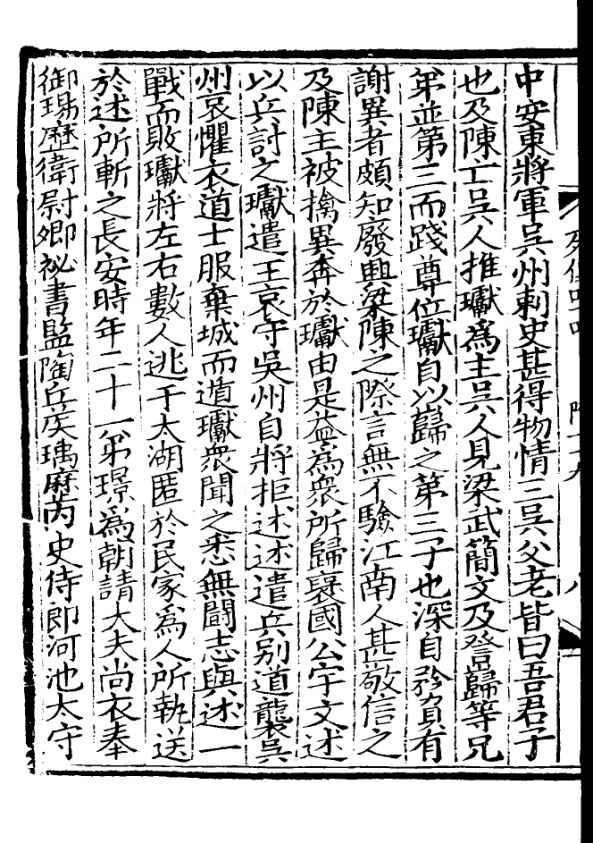 中安東將軍吳州刺史甚得物情三吳父老皆曰吾君子
也及陳亡吳人推瓛爲主吳人見梁武簡文及詧巋等兄
弟並第三而踐尊位瓛自以巋之第三子也深自矜負有
謝異者頗知廢興梁陳之際言無不驗江南人甚敬信之
及陳主被擒異奔於瓛由是益爲衆所歸襃國公宇文述
以兵討之瓛遣王哀守吳州自將拒述述遣兵别道襲吳
州哀懼衣道士服棄城而遁瓛衆聞之悉無鬬志與述一
戰而敗瓛將左右數人逃于太湖匿於民家爲人所執送
於述所斬之長安時年二十一弟璟爲朝請大夫尚衣奉
御瑒歷衛尉卿祕書監陶丘侯瑀歷内史侍郎河池太守